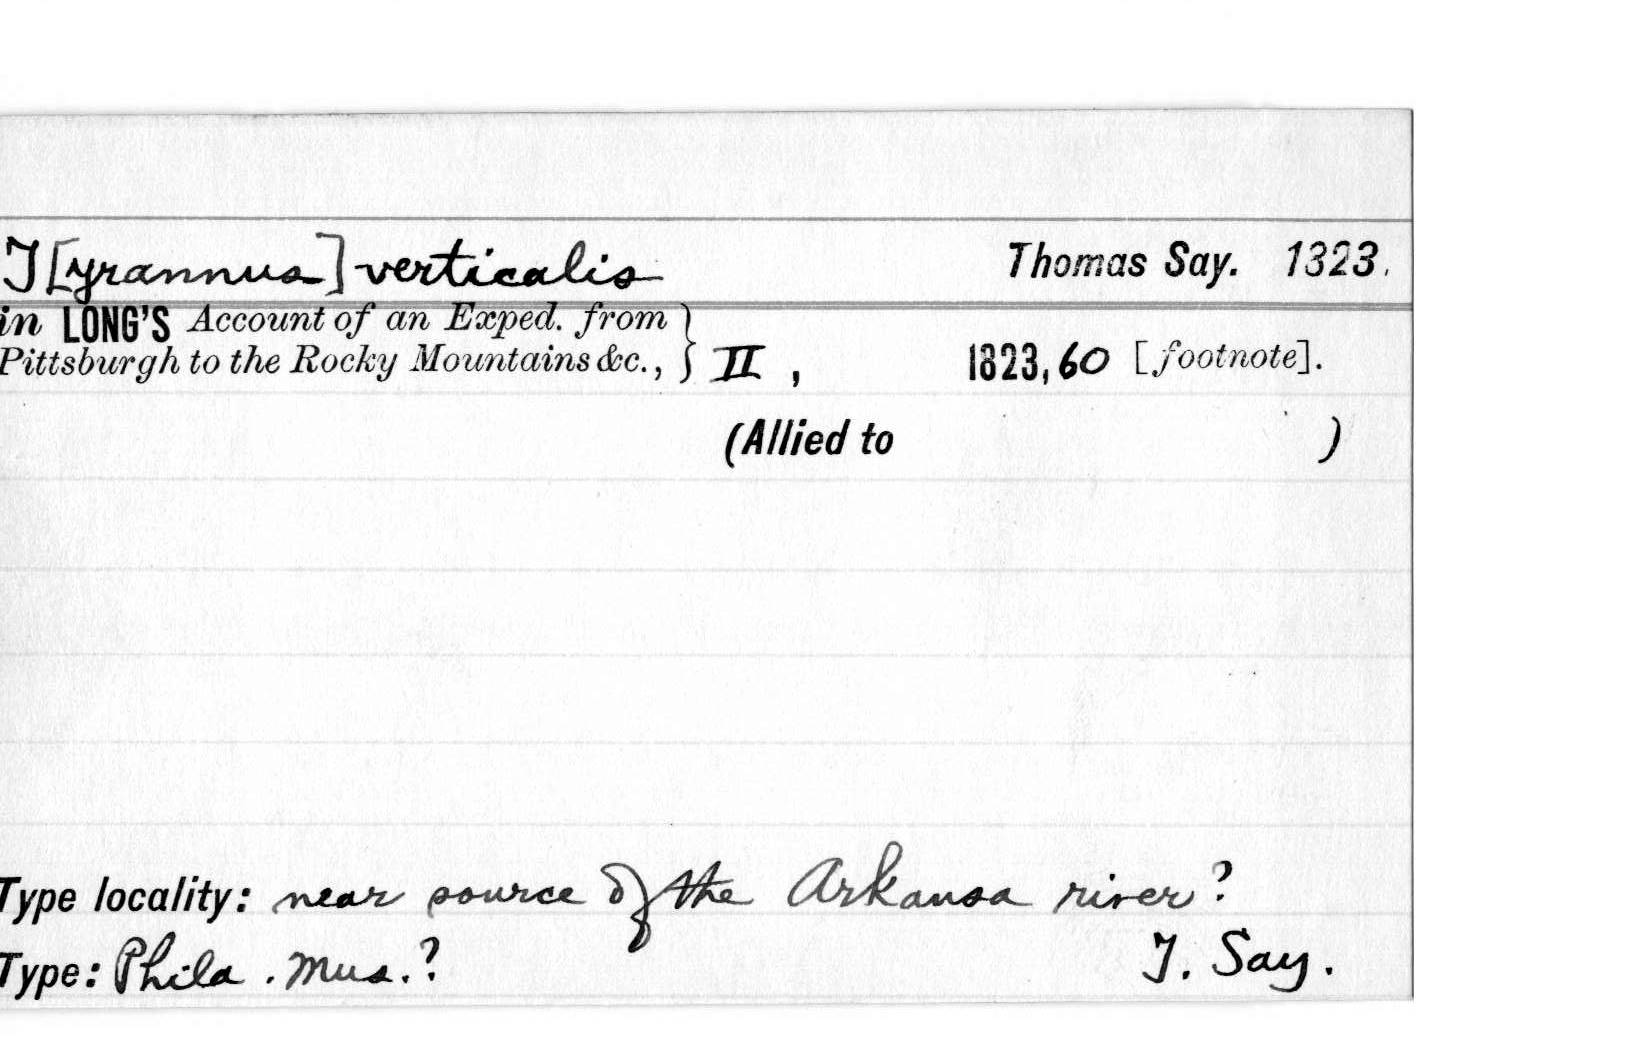 T[yrannus] verticalis Thomas Say. 1323.
in LONG'S Account of an Exped. from
Pittsburgh to the Rocky Mountains &c., } II, 1823, 60 [footnote].
(Allied to )
Type locality: near source of the Arkansa river?
Type: Phila. Mus.? T. Say.